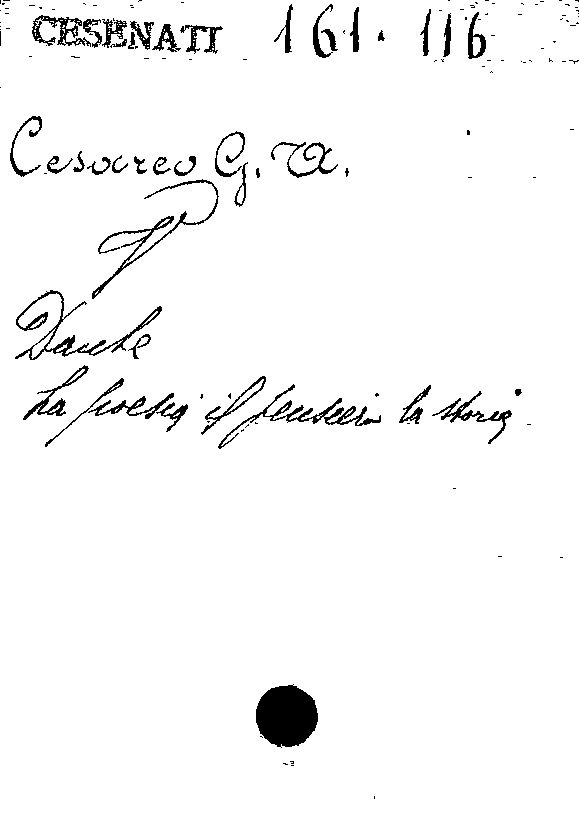 CESENATI 161. 116
Cesareo G. A.
V
Dante
La poesia il pensiero la storia